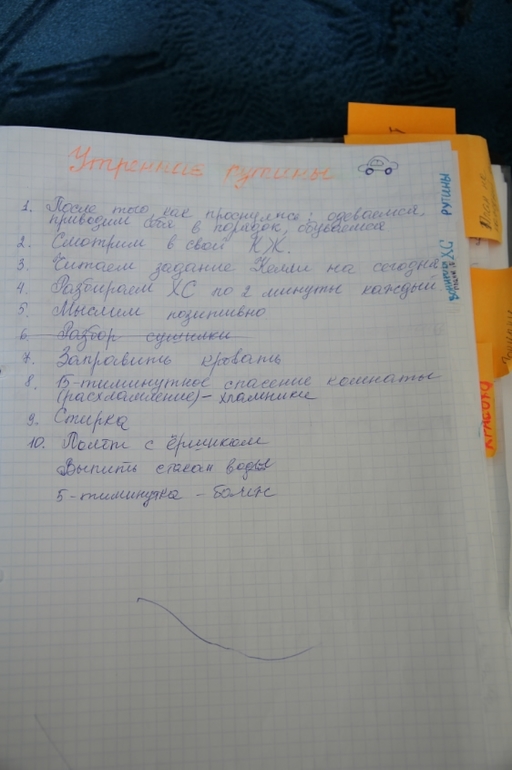 Утренние рутины
1. После того как проснулись: одеваемся,
приводим себя в порядок, обуваемся
2. Смотрим в свой КЖ.
3. Читаем задание Келли на сегодня
4. Разбираем ХС по 2 минуты каждый
5. Мыслим позитивно
6. Разбор сушилки
7. Заправить кровать
8. 15-тиминутное спасение комнаты
(расхламление) - хламники
9. Стирка
10. Полёт с ёршиком
Выпить стакан воды
5-тиминутка -
РУТИНЫ
ХС
КРАСОТА